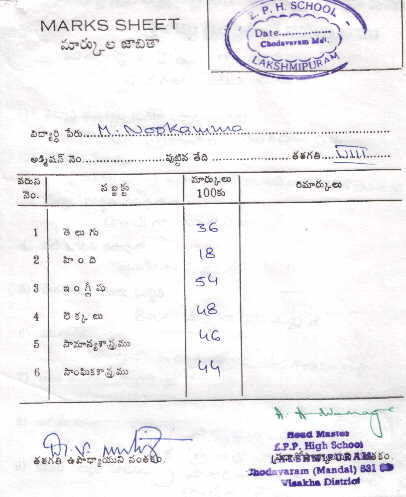 MARKS SHEET
మార్కుల జాబితా
Z.P.H. SCHOOL
Date................
Chodavaram Mdl.
LAKSHMIPURAM
విద్యార్థి పేరు....M. Nookamma....
అడ్మిషన్ నెం. .................... పుట్టిన తేది ................ తరగతి..VIII..
వరుస నెం. సబ్జక్టు మార్కులు 100కు రిమార్కులు
1 తెలుగు 36
2 హింది 18
3 ఇంగ్లీషు 54
4 లెక్కలు 48
5 సామాన్యశాస్త్రము 46
6 సాంఘికశాస్త్రము 44
తరగతి ఉపాధ్యాయుని సంతకం.
Head Master
Z.P.P. High School
LAKSHMIPURAM
Chodavaram (Mandal) 531
Visakha District